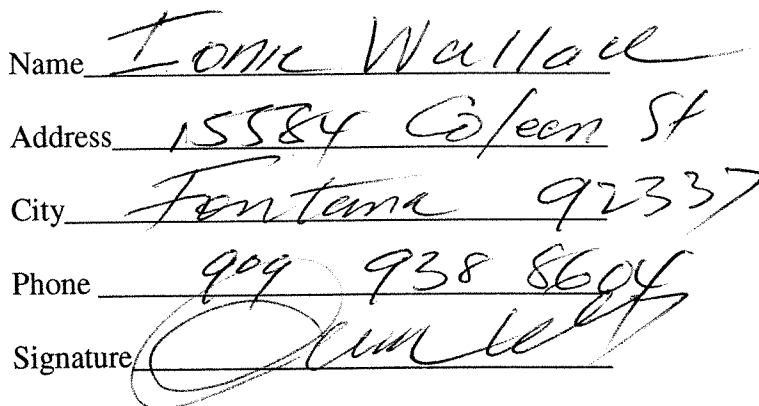 Name Ionie Wallace
Address 15584 Coleen St
City Fontana 92337
Phone 909 938 8604
Signature